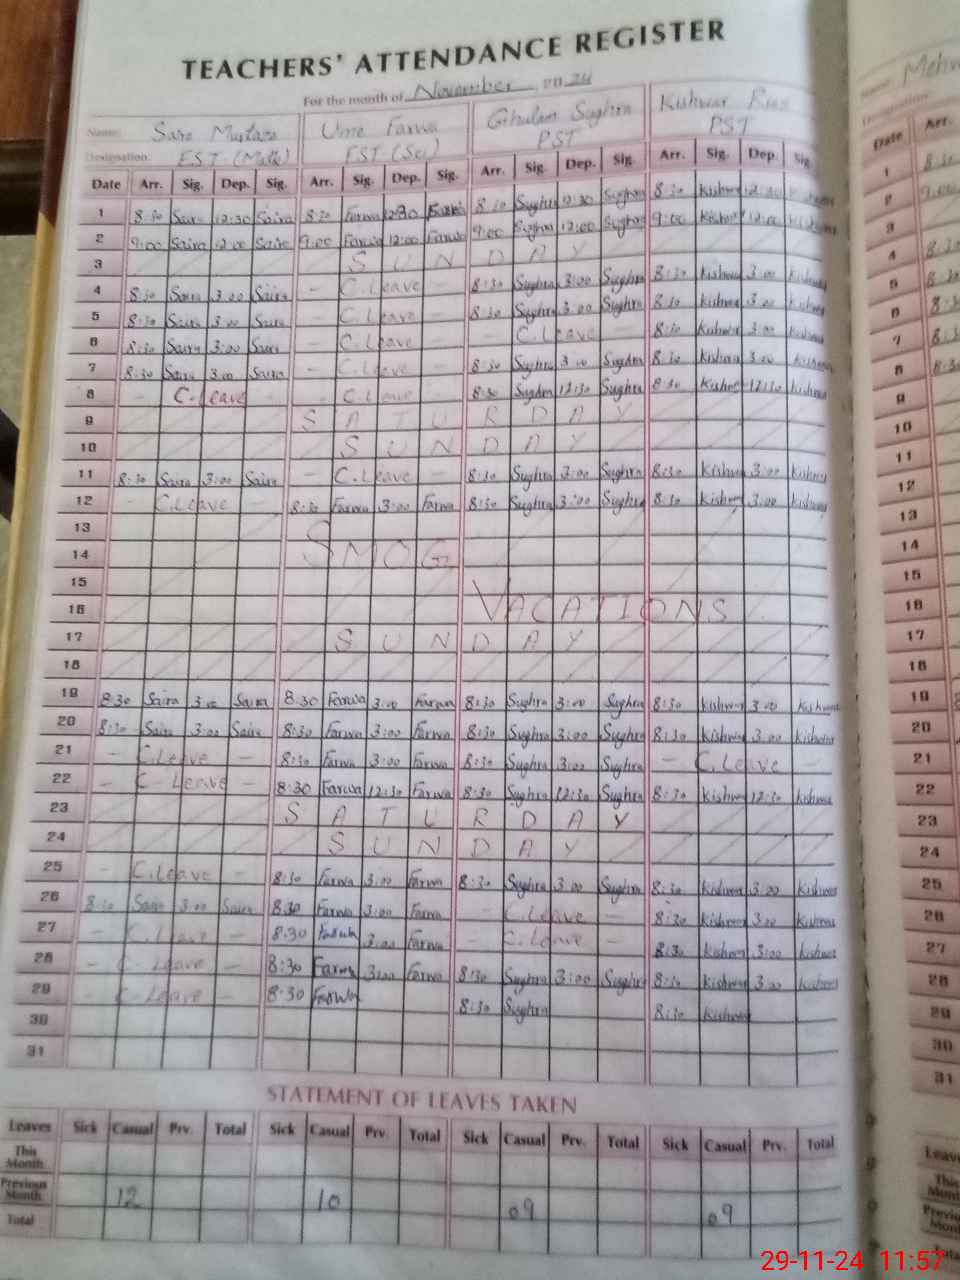 TEACHERS' ATTENDANCE REGISTER
For the month of November 2024
Name: Saira Murtaza Ume Farwa Ghulam Sughra Kishwar Riaz
Designation: EST (Math) EST (Sci) PST PST
Date Arr. Sig. Dep. Sig. Arr. Sig. Dep. Sig. Arr. Sig. Dep. Sig. Arr. Sig. Dep. Sig.
1 8:30 Saira 12:30 Saira 8:30 Farwa 12:30 Farwa 8:30 Sughra 12:30 Sughra 8:30 Kishwar 12:30 Kishwar
2 9:00 Saira 12:00 Saira 9:00 Farwa 12:00 Farwa 9:00 Sughra 12:00 Sughra 9:00 Kishwar 12:00 Kishwar
3 SUNDAY
4 8:30 Saira 3:00 Saira - C.Leave - 8:30 Sughra 3:00 Sughra 8:30 Kishwar 3:00 Kishwar
5 8:30 Saira 3:00 Saira - C.Leave - 8:30 Sughra 3:00 Sughra 8:30 Kishwar 3:00 Kishwar
6 8:30 Saira 3:00 Saira - C.Leave - - C.Leave - 8:30 Kishwar 3:00 Kishwar
7 8:30 Saira 3:00 Saira - C.Leave - 8:30 Sughra 3:00 Sughra 8:30 Kishwar 3:00 Kishwar
8 - C.Leave - - C.Leave - 8:30 Sughra 12:30 Sughra 8:30 Kishwar 12:30 Kishwar
9 SATURDAY
10 SUNDAY
11 8:30 Saira 3:00 Saira - C.Leave - 8:30 Sughra 3:00 Sughra 8:30 Kishwar 3:00 Kishwar
12 - C.Leave 8:30 Farwa 3:00 Farwa 8:30 Sughra 3:00 Sughra 8:30 Kishwar 3:00 Kishwar
13
14 SMOG
15
16 VACATIONS
17 SUNDAY
18
19 8:30 Saira 3:00 Saira 8:30 Farwa 3:00 Farwa 8:30 Sughra 3:00 Sughra 8:30 Kishwar 3:00 Kishwar
20 8:30 Saira 3:00 Saira 8:30 Farwa 3:00 Farwa 8:30 Sughra 3:00 Sughra 8:30 Kishwar 3:00 Kishwar
21 - C.Leave - 8:30 Farwa 3:00 Farwa 8:30 Sughra 3:00 Sughra - C.Leave -
22 - C Leave - 8:30 Farwa 12:30 Farwa 8:30 Sughra 12:30 Sughra 8:30 Kishwar 12:30 Kishwar
23 SATURDAY
24 SUNDAY
25 - C.Leave - 8:30 Farwa 3:00 Farwa 8:30 Sughra 3:00 Sughra 8:30 Kishwar 3:00 Kishwar
26 8:30 Saira 3:00 Saira 8:30 Farwa 3:00 Farwa - C.Leave - 8:30 Kishwar 3:00 Kishwar
27 - C.Leave - 8:30 Farwa 3:00 Farwa - C.Leave - 8:30 Kishwar 3:00 Kishwar
28 - C Leave - 8:30 Farwa 3:00 Farwa 8:30 Sughra 3:00 Sughra 8:30 Kishwar 3:00 Kishwar
29 - C Leave - 8:30 Farwa 8:30 Sughra 8:30 Kishwar
30
31
STATEMENT OF LEAVES TAKEN
Leaves Sick Casual Prv. Total Sick Casual Prv. Total Sick Casual Prv. Total Sick Casual Prv. Total
This Month
Previous Month 12 10 09 09
Total
Name:
Designation:
Date Arr.
1
2
3
4
5
6
7
8
9
10
11
12
13
14
15
16
17
18
19
20
21
22
23
24
25
26
27
28
29
30
31
29-11-24 11:57